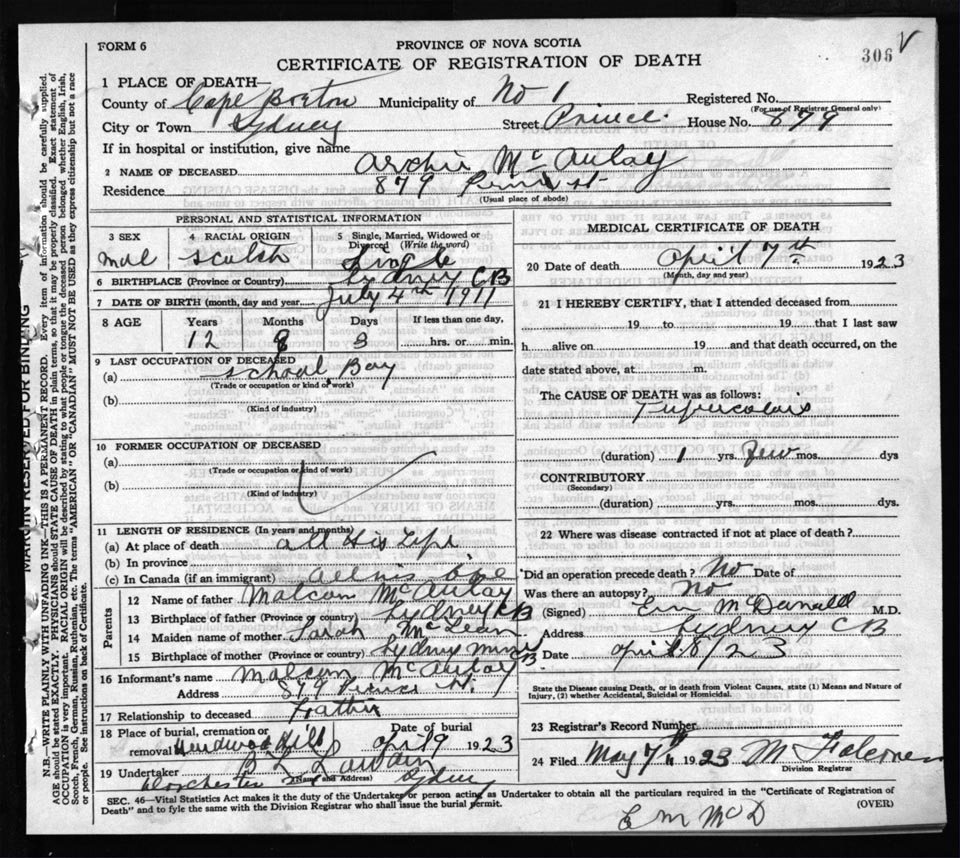 FORM 6
PROVINCE OF NOVA SCOTIA
CERTIFICATE OF REGISTRATION OF DEATH
306 V
1 PLACE OF DEATH—
County of Cape Breton Municipality of No 1 Registered No.
(For use of Registrar General only)
City or Town Sydney Street Prince. House No. 879
If in hospital or institution, give name
2 NAME OF DECEASED Archie McAulay
Residence 879 Prince St
(Usual place of abode)
PERSONAL AND STATISTICAL INFORMATION
3 SEX
mal
4 RACIAL ORIGIN
Scotsh
5 Single, Married, Widowed or Divorced (Write the word)
Single
6 BIRTHPLACE (Province or Country) Sydney CB
7 DATE OF BIRTH (month, day and year) July 4th 1911
8 AGE Years Months Days If less than one day,
12 8 3 hrs. or min.
9 LAST OCCUPATION OF DECEASED
(a) School Boy
(Trade or occupation or kind of work)
(b)
(Kind of industry)
10 FORMER OCCUPATION OF DECEASED
(a)
(Trade or occupation or kind of work)
(b)
(Kind of industry)
11 LENGTH OF RESIDENCE (In years and months)
(a) At place of death all His Life
(b) In province
(c) In Canada (if an immigrant) all his life
Parents
12 Name of father Malcom McAulay
13 Birthplace of father (Province or country) Sydney CB
14 Maiden name of mother Sarah McLean
15 Birthplace of mother (Province or country) Sydney mines CB
16 Informant's name Malcom McAulay
Address 879 Prince St.
17 Relationship to deceased Father
18 Place of burial, cremation or removal Date of burial
April 9 1923
19 Undertaker
(Name and Address)
Dorchester Sydney
MEDICAL CERTIFICATE OF DEATH
20 Date of death April 7th 1923
(Month, day and year)
21 I HEREBY CERTIFY, that I attended deceased from
19 to 19 that I last saw
h alive on 19 and that death occurred, on the
date stated above, at m.
The CAUSE OF DEATH was as follows:
Tupercolous
(duration) 1 yrs. few mos. dys
CONTRIBUTORY
(Secondary)
(duration) yrs. mos. dys.
22 Where was disease contracted if not at place of death?
Did an operation precede death? No Date of
Was there an autopsy? No
(Signed) E m McDonald M.D.
Address Sydney CB
Date April 8/23
State the Disease causing Death, or in death from Violent Causes, state (1) Means and Nature of
Injury, (2) whether Accidental, Suicidal or Homicidal.
23 Registrar's Record Number
24 Filed May 7th 1923
Division Registrar
SEC. 46—Vital Statistics Act makes it the duty of the Undertaker or person acting as Undertaker to obtain all the particulars required in the "Certificate of Registration of
Death" and to fyle the same with the Division Registrar who shall issue the burial permit.
(OVER)
E m McD
MARGIN RESERVED FOR BINDING
N.B.—WRITE PLAINLY WITH UNFADING INK—THIS IS A PERMANENT RECORD. Every item of information should be carefully supplied.
AGE should be stated EXACTLY. PHYSICIANS should STATE CAUSE OF DEATH in plain terms, so that it may be properly classified. Exact statement of
OCCUPATION is very important. RACIAL ORIGIN will be described by stating to what people or tongue the deceased person belonged whether English, Irish,
Scotch, French, German, Russian, Ruthenian, etc. The terms "AMERICAN" OR "CANADIAN" MUST NOT BE USED as they express citizenship but not a race
or people. See instructions on back of Certificate.